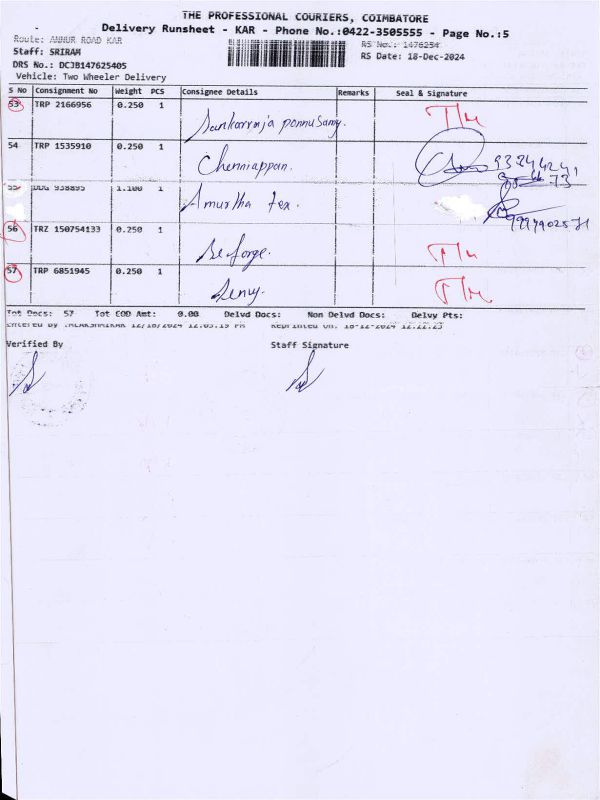 THE PROFESSIONAL COURIERS, COIMBATORE
Delivery Runsheet - KAR - Phone No.:0422-3505555 - Page No.:5
Route: ANNUR ROAD KAR
RS No.: 1476254
Staff: SRIRAM
RS Date: 18-Dec-2024
DRS No.: DCJB147625405
Vehicle: Two Wheeler Delivery
S No Consignment No Weight PCS Consignee Details Remarks Seal & Signature
53 TRP 2166956 0.250 1
Sankarraja ponnusamy.
54 TRP 1535910 0.250 1
Chenniappan.
55 DDG 938895 1.100 1
Amurtha tex.
56 TRZ 150754133 0.250 1
Be forge.
57 TRP 6851945 0.250 1
Tot Docs: 57 Tot COD Amt: 0.00 Delvd Docs: Non Delvd Docs: Delvy Pts:
Reprinted on: 18-12-2024 12:22:23
Verified By Staff Signature